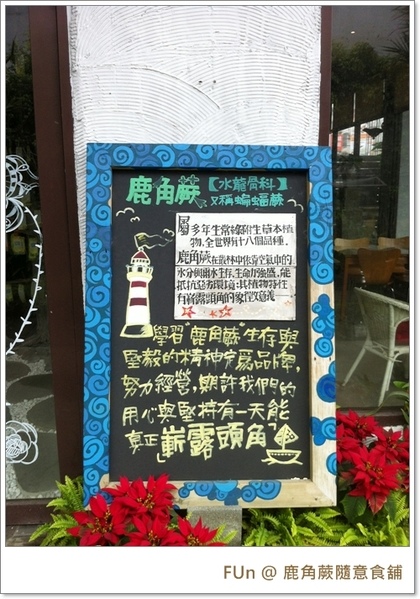 鹿角蕨【水龍骨科】
又稱蝙蝠蕨
屬多年生常綠附生草本植
物,全世界有十八個品種。
鹿角蕨在叢林中依靠空氣中的
水分與雨水生存,生命力強盛,能
抵抗惡劣環境;其植物特性
有嶄露頭角的象徵意義
學習"鹿角蕨"生存與
堅毅的精神作為品牌,
努力經營,期許我們的
用心與堅持有一天能
真正「嶄露頭角」
FUn @ 鹿角蕨隨意食舖